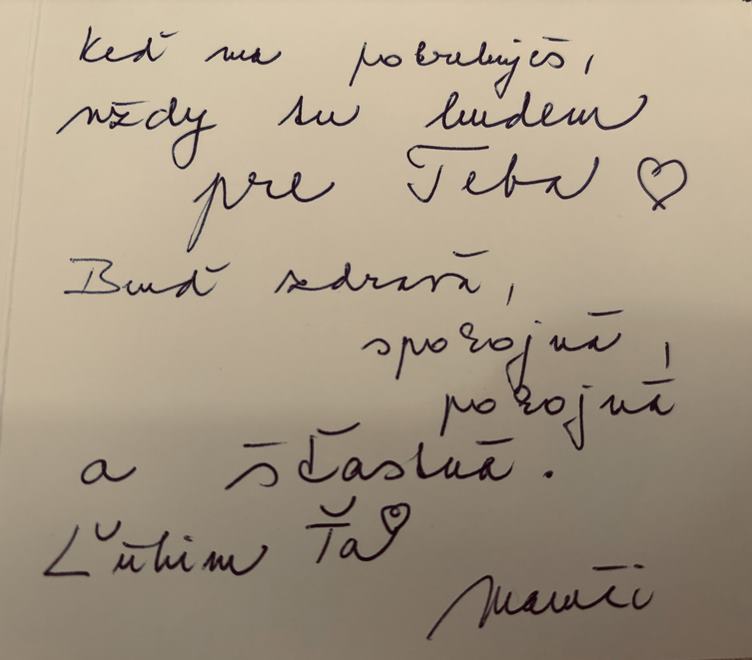 Keď ma potrebuješ,
vždy tu budem
pre Teba ♡
Buď zdravá,
spokojná,
pokojná
a šťastná.
Ľúbim Ťa ♡
Mamči